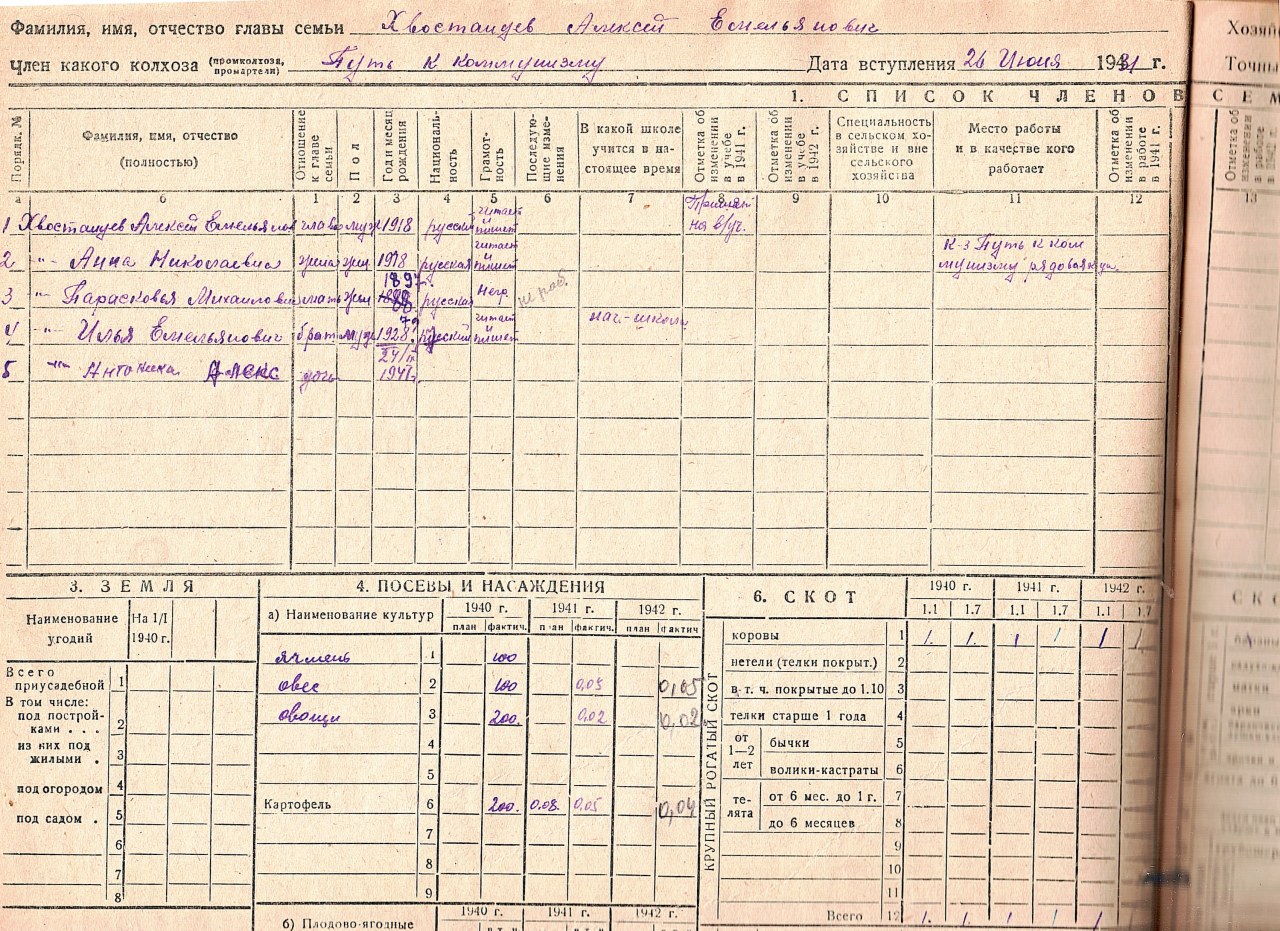 Фамилия, имя, отчество главы семьи Хвостанцев Алексей Емельянович
Член какого колхоза (промколхоза, промартели) Путь к коммунизму Дата вступления 26 Июня 1931 г.
1. СПИСОК ЧЛЕНОВ СЕМ
Порядк. №
Фамилия, имя, отчество (полностью)
Отношение к главе семьи
Пол
Год и месяц рождения
Националь-ность
Грамот-ность
Последую-щие изме-нения
В какой школе учится в на-стоящее время
Отметка об изменении в учебе в 1941 г.
Отметка об изменении в учебе в 1942 г.
Специальность в сельском хо-зяйстве и вне сельского хозяйства
Место работы и в качестве кого работает
Отметка об изменении в работе в 1941 г.
а б 1 2 3 4 5 6 7 8 9 10 11 12 13
1 Хвостанцев Алексей Емельянов глава муж 1918 русский читает пишет на в/уч.
2 -"- Анна Николаевна жена жен 1918 русская читает пишет к-з Путь к ком мунизму рядовая
3 -"- Парасковья Михайлов мать жен 1897 русская негр.
4 -"- Илья Емельянович брат муж 1928 русский читает пишет нач-школа
5 -"- Антонина Алекс дочь 1941
3. ЗЕМЛЯ
Наименование угодий На 1/I 1940 г.
Всего приусадебной 1
В том числе:
под построй-ками . . . 2
из них под жилыми . 3
под огородом 4
под садом . 5
6
7
8
4. ПОСЕВЫ И НАСАЖДЕНИЯ
а) Наименование культур 1940 г. 1941 г. 1942 г.
план фактич. план фактич. план фактич
ячмень 1 100
овес 2 100 0,05 0,05
овощи 3 200. 0,02 0,02
4
5
Картофель 6 200. 0,08 0,05 0,04
7
8
9
б) Плодово-ягодные 1940 г. 1941 г. 1942 г.
6. СКОТ 1940 г. 1941 г. 1942 г.
1.1 1.7 1.1 1.7 1.1 1.7
КРУПНЫЙ РОГАТЫЙ СКОТ
коровы 1 1. 1. 1 1 1 1
нетели (телки покрыт.) 2
в т. ч. покрытые до 1.10 3
телки старше 1 года 4
от 1—2 лет бычки 5
волики-кастраты 6
те-лята от 6 мес. до 1 г. 7
до 6 месяцев 8
9
10
11
Всего 12 1. 1. 1. 1 1
Хозяй
Точны